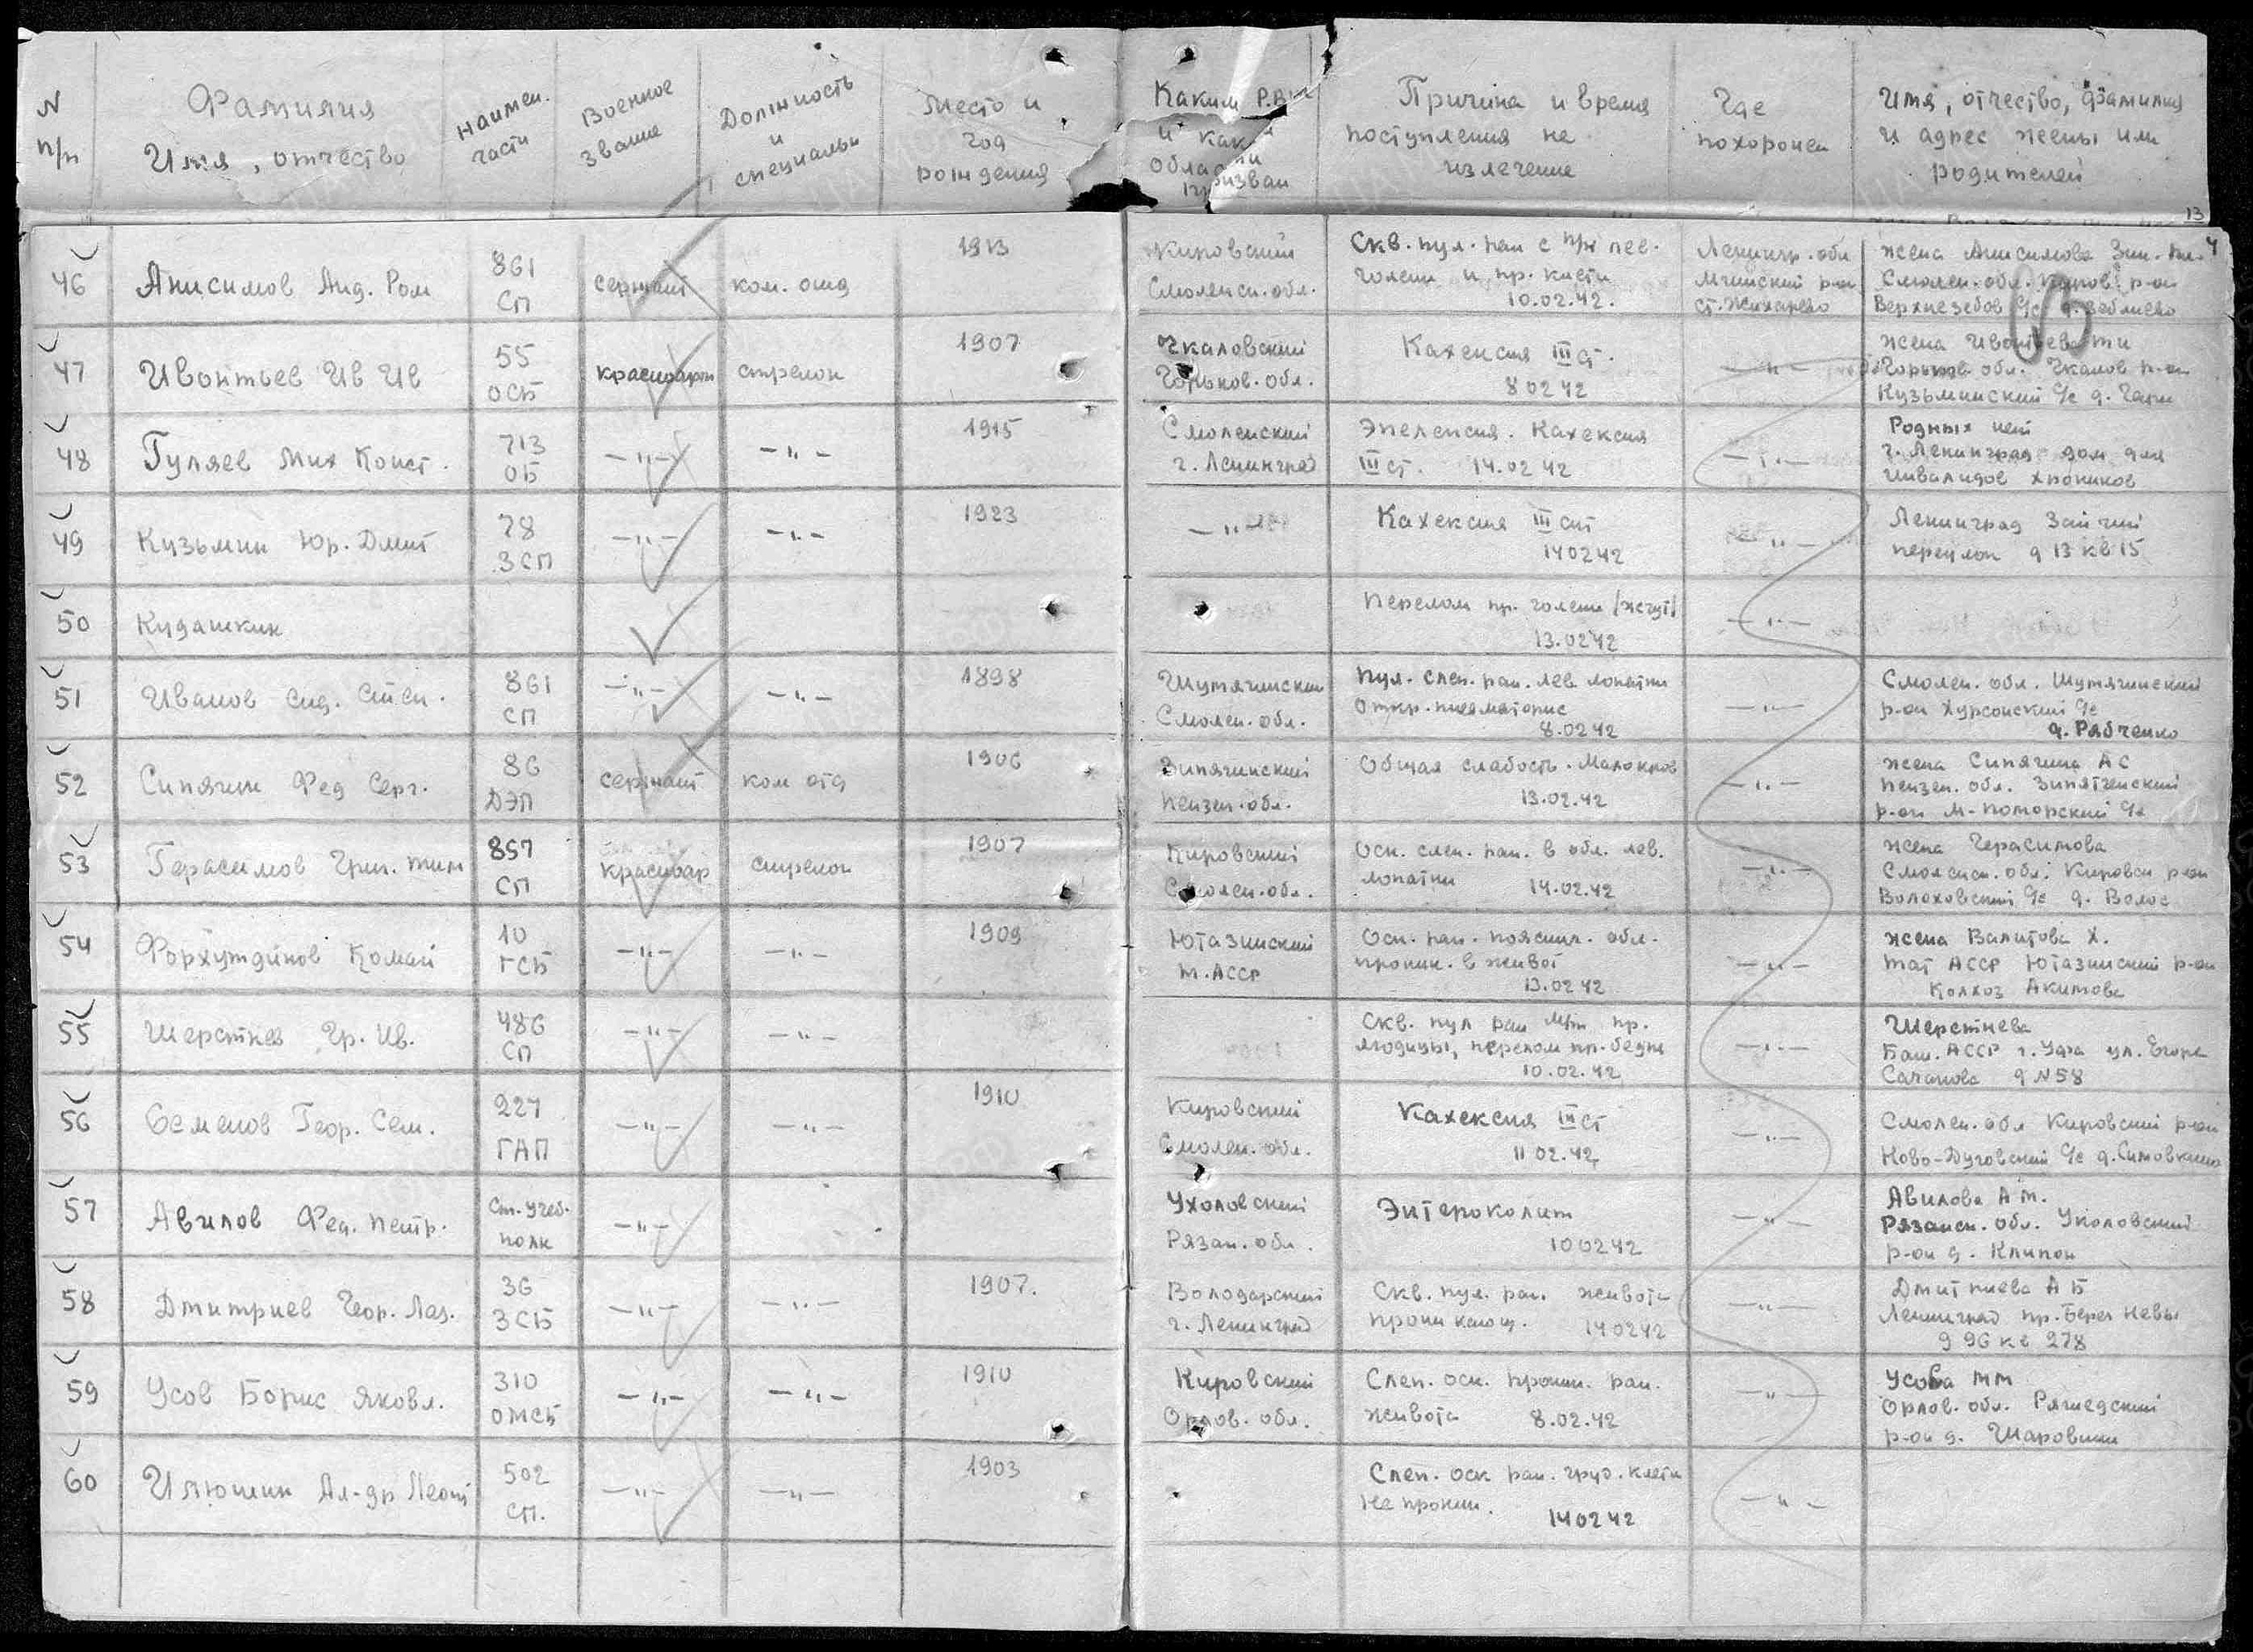 N п/п
Фамилия Имя, отчество
Наимен. части
Военное звание
Должность и специальн
Место и год рождения
Каким Р.В.К и как области призван
Причина и время поступления на излечение
Где похоронен
Имя, отчество, фамилия и адрес жены или родителей
13
4
46 Анисимов Анд. Ром 861 СП сержант ком. отд 1913
Кировский Смоленск. обл. Скв. пул. ран с п/к лев. голени и пр. кисти 10.02.42. Ленингр. обл Мгинский р-он ст. Жихарево жена Анисимова Зин. Смолен. обл. Киров р-он Верхнезебов с/с
47 Ивонтьев Ив Ив 55 ОСБ красноарм стрелок 1907
Чкаловский Горьков. обл. Кахексия III ст. 8 02 42 —"— жена Ивонтьева Горьков обл. Чкалов р-он Кузьминский с/с д.
48 Гуляев Мих Конст. 713 ОБ —"— —"— 1915
Смоленский г. Ленинград Эпелепсия. Кахексия III ст. 14.02 42 —"— Родных нет г. Ленинград дом для инвалидов хроников
49 Кузьмин Юр. Дмит 78 ЗСП —"— —"— 1923
—"— Кахексия III ст 14 02 42 —"— Ленинград Заячий переулок д 13 кв 15
50 Кудашкин
Перелом пр. голени /жгут/ 13.02 42 —"—
51 Иванов Сид. 861 СП —"— —"— 1898
Шумячинский Смолен. обл. Пул. слеп. ран. лев лопатки Откр. пневматорис 8.02 42 —"— Смолен. обл. Шумячинский р-он Хурсонский с/с д. Рябченко
52 Синягин Фед Серг. 86 ДЭП сержант ком отд 1906
Пензен. обл. Общая слабость. Малокров 13.02.42 —"— жена Синягина АС Пензен. обл. р-он М-Поморский с/с
53 Герасимов Григ. Тим 857 СП красноар стрелок 1907
Кировский Смолен. обл. Оск. слеп. ран. в обл. лев. лопатки 14.02.42 —"— жена Герасимова Смоленск. обл. Кировск р-он Волоховский с/с д. Волое
54 Форхутдинов Комай 10 ГСБ —"— —"— 1909
Ютазинский Т. АССР Оск. ран. пояснич. обл. проник. в живот 13.02 42 —"— жена Валитова Х. Тат АССР Ютазинский р-он Колхоз Акимова
55 Шерстнев Гр. Ив. 486 СП —"— —"—
Скв. пул ран м/т пр. ягодицы, перелом пр. бедра 10.02.42 —"— Шерстнева Баш. АССР г. Уфа ул. Егора Сачанова д N 58
56 Семенов Геор. Сем. 227 ГАП —"— —"— 1910
Кировский Смолен. обл. Кахексия III ст 11 02.42 —"— Смолен. обл Кировский р-он Ново-Дуговский с/с
57 Авилов Фед. Петр. Ст. учеб. полк —"—
Ухоловский Рязан. обл. Энтероколит 10 02 42 —"— Авилова А М. Рязанск. обл. Ухоловский р-он д. Клипок
58 Дмитриев Геор. Лаз. 36 ЗСБ —"— —"— 1907.
Володарский г. Ленинград Скв. пул. ран. живота проникающ. 14 02 42 —"— Дмитриева А Б Ленинград пр. Берег Невы д 96 кв 278
59 Усов Борис Яковл. 310 ОМСБ —"— —"— 1910
Кировский Орлов. обл. Слеп. оск. проник. ран. живота 8.02.42 —"— Усова ММ Орлов. обл. р-он д. Шаровичи
60 Илюшин Ал-др Леонт 502 СП. —"— —"— 1903
Слеп. оск ран. груд. клетк не проник. 14 02 42 —"—